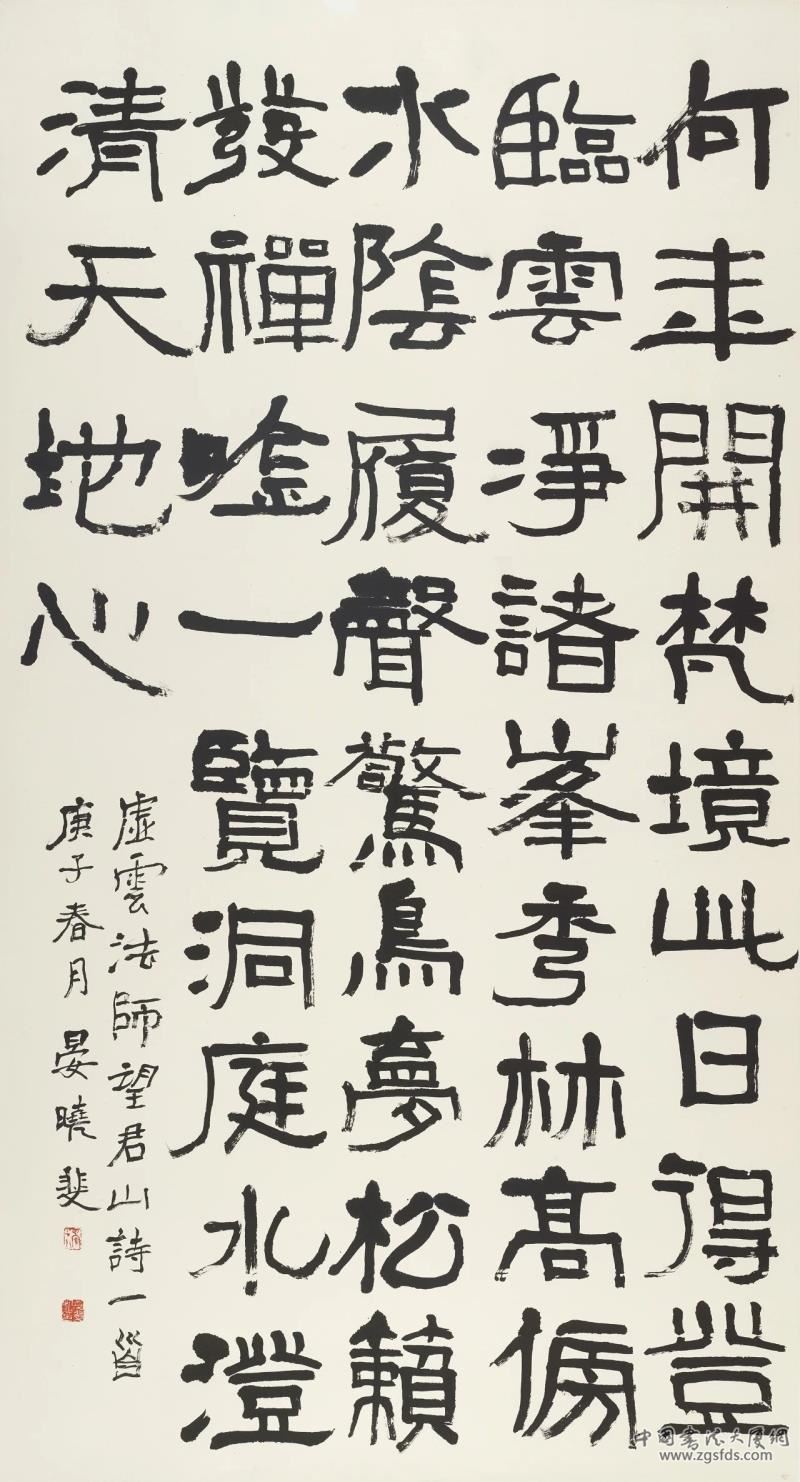 何年開梵境此日得登
臨雲淨諸峯秀林高傍
水陰履聲驚鳥夢松籟
發禪唫一覽洞庭水澄
清天地心
虛雲法師望君山詩一首
庚子春月晏曉斐
中國書法大廈網
www.zgsfds.com